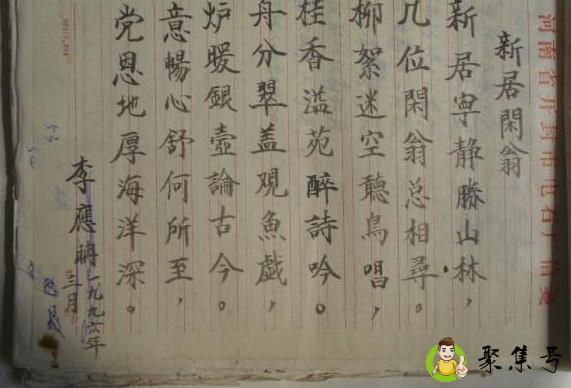 新居閑翁
新居宁静勝山林，
几位閑翁总相尋。
柳絮迷空聽鳥唱，
桂香溢苑醉詩吟。
舟分翠盖观魚戲，
炉暖銀壺論古今。
意暢心舒何所至，
党恩地厚海洋深。
李應
一九九六年
三月
河南省开封市
聚集号